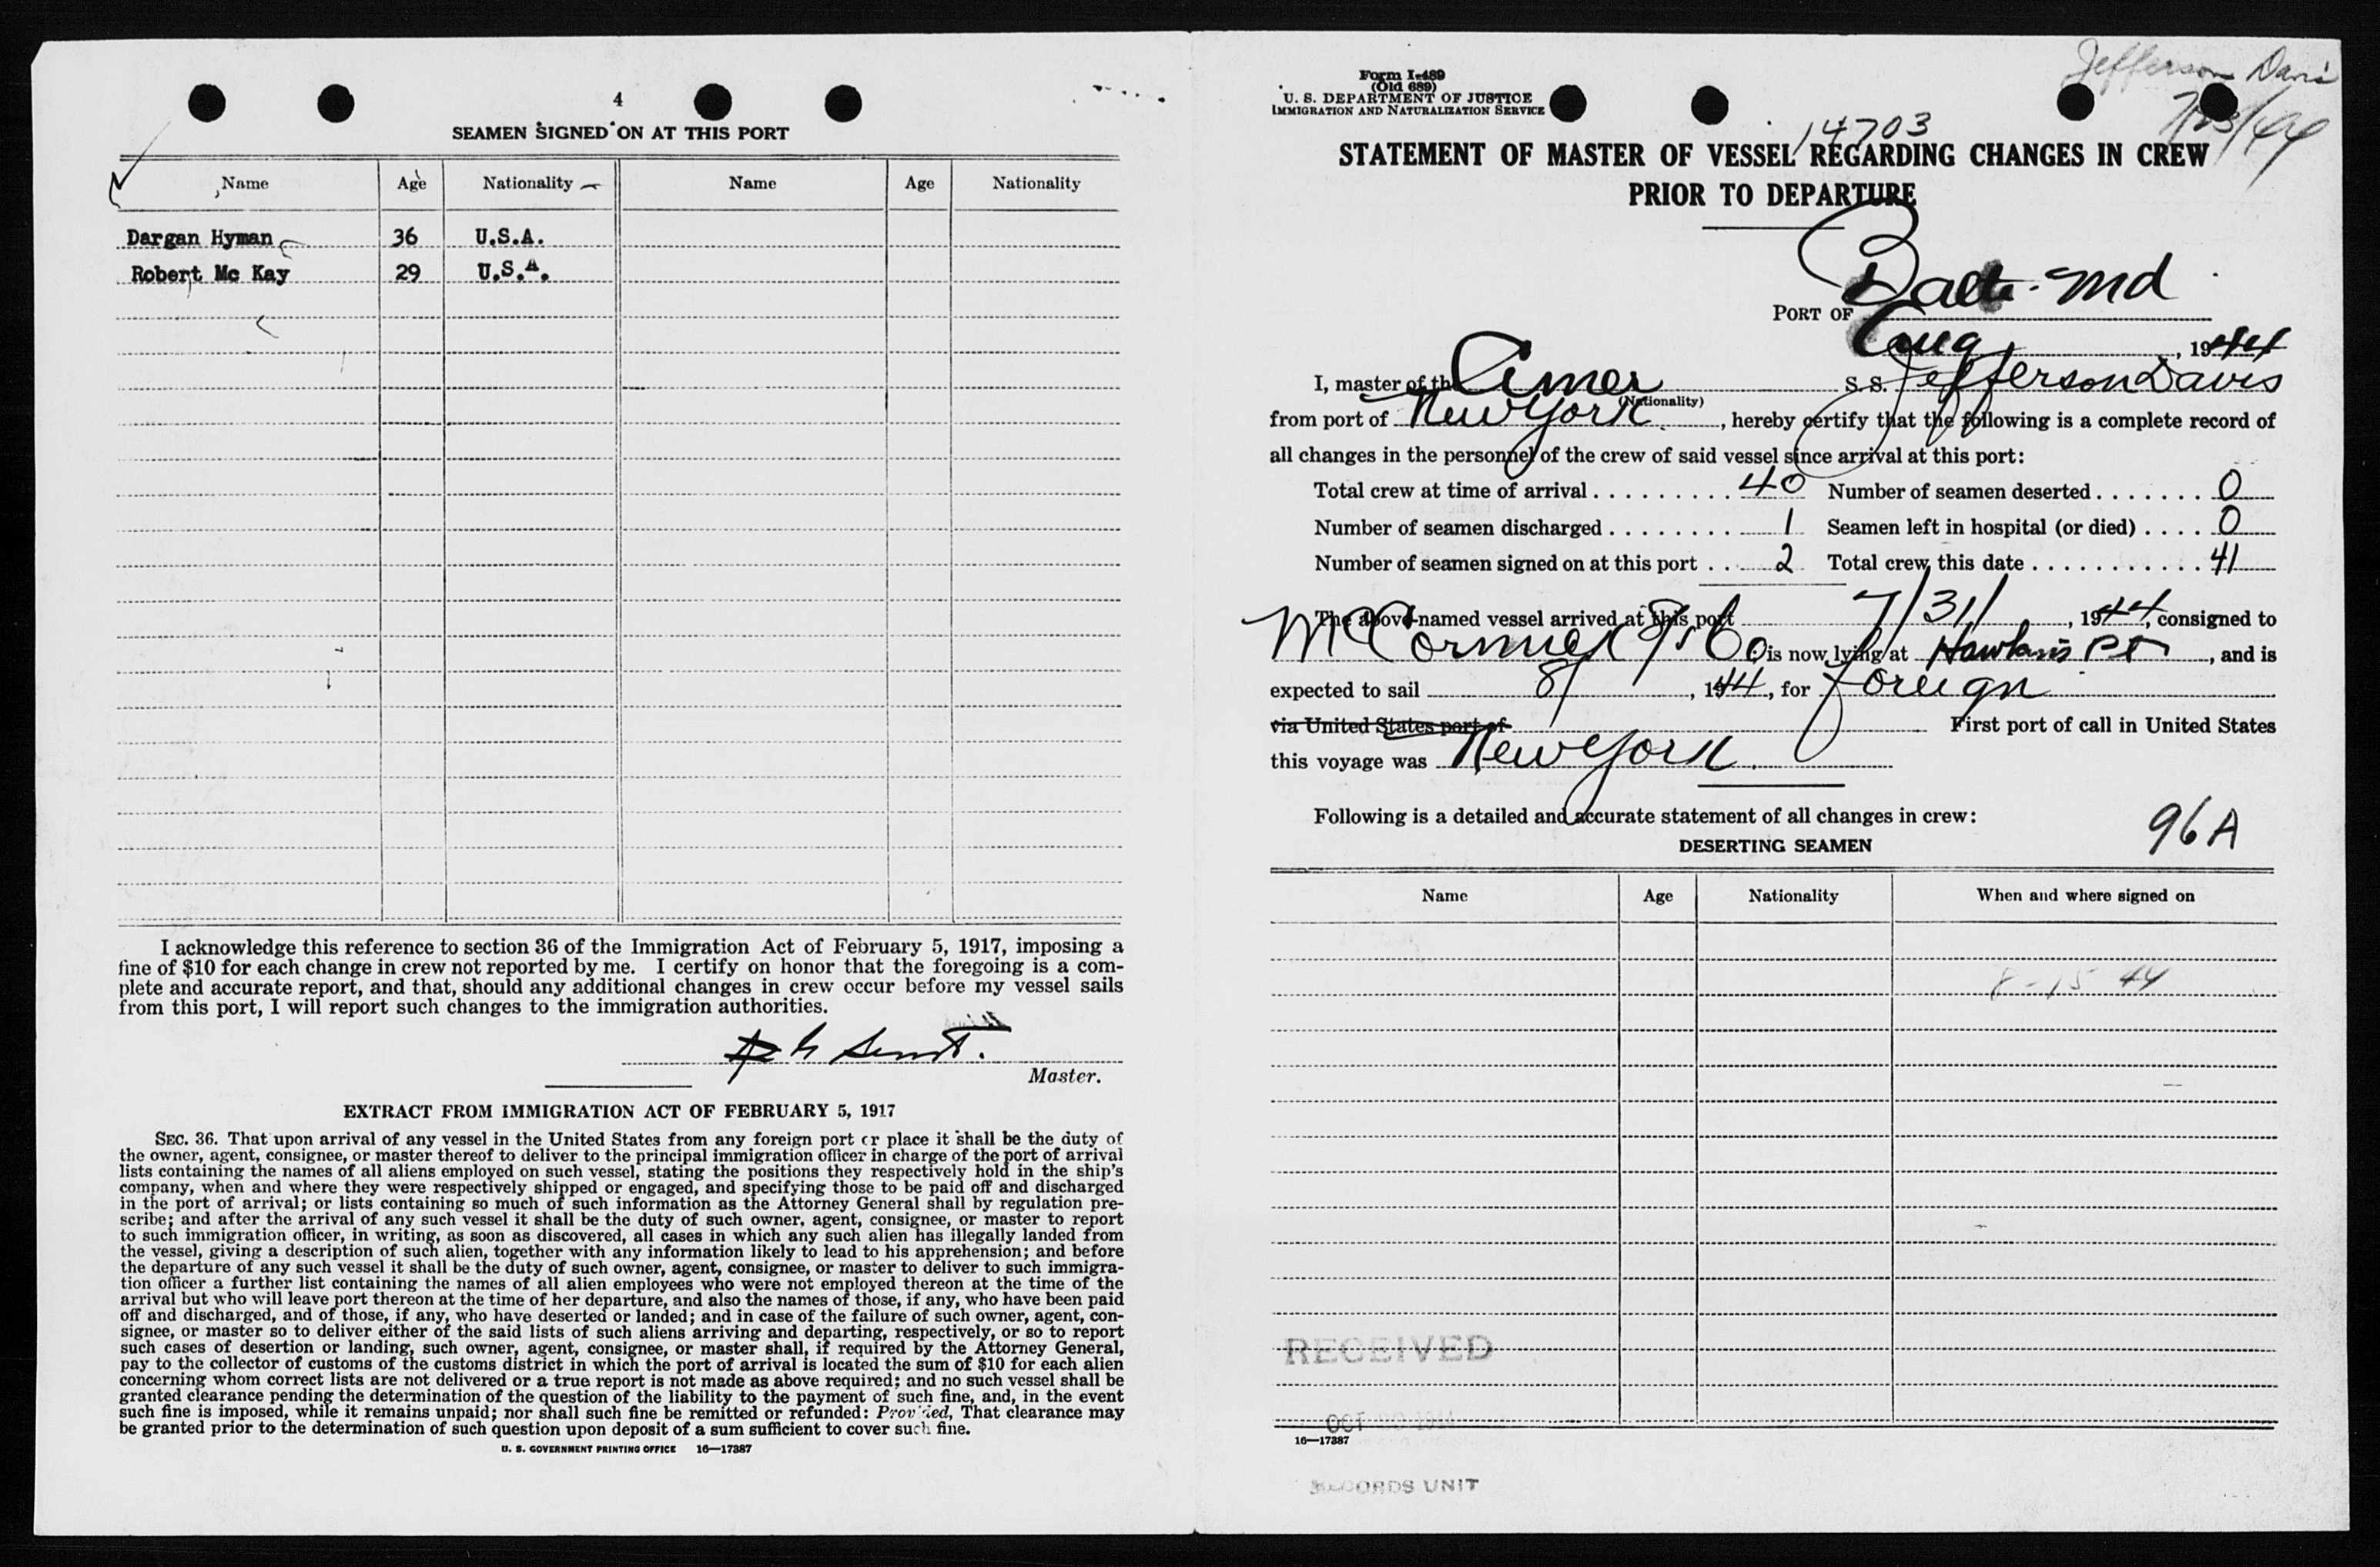 4
SEAMEN SIGNED ON AT THIS PORT
Name Age Nationality Name Age Nationality
Dargan Hyman 36 U.S.A.
Robert Mc Kay 29 U.S.A.
I acknowledge this reference to section 36 of the Immigration Act of February 5, 1917, imposing a
fine of $10 for each change in crew not reported by me. I certify on honor that the foregoing is a com-
plete and accurate report, and that, should any additional changes in crew occur before my vessel sails
from this port, I will report such changes to the immigration authorities.
Master.
EXTRACT FROM IMMIGRATION ACT OF FEBRUARY 5, 1917
SEC. 36. That upon arrival of any vessel in the United States from any foreign port or place it shall be the duty of
the owner, agent, consignee, or master thereof to deliver to the principal immigration officer in charge of the port of arrival
lists containing the names of all aliens employed on such vessel, stating the positions they respectively hold in the ship's
company, when and where they were respectively shipped or engaged, and specifying those to be paid off and discharged
in the port of arrival; or lists containing so much of such information as the Attorney General shall by regulation pre-
scribe; and after the arrival of any such vessel it shall be the duty of such owner, agent, consignee, or master to report
to such immigration officer, in writing, as soon as discovered, all cases in which any such alien has illegally landed from
the vessel, giving a description of such alien, together with any information likely to lead to his apprehension; and before
the departure of any such vessel it shall be the duty of such owner, agent, consignee, or master to deliver to such immigra-
tion officer a further list containing the names of all alien employees who were not employed thereon at the time of the
arrival but who will leave port thereon at the time of her departure, and also the names of those, if any, who have been paid
off and discharged, and of those, if any, who have deserted or landed; and in case of the failure of such owner, agent, con-
signee, or master so to deliver either of the said lists of such aliens arriving and departing, respectively, or so to report
such cases of desertion or landing, such owner, agent, consignee, or master shall, if required by the Attorney General,
pay to the collector of customs of the customs district in which the port of arrival is located the sum of $10 for each alien
concerning whom correct lists are not delivered or a true report is not made as above required; and no such vessel shall be
granted clearance pending the determination of the question of the liability to the payment of such fine, and, in the event
such fine is imposed, while it remains unpaid; nor shall such fine be remitted or refunded: Provided, That clearance may
be granted prior to the determination of such question upon deposit of a sum sufficient to cover such fine.
U. S. GOVERNMENT PRINTING OFFICE 16—17387
Jefferson Davis
7/23/44
Form I-489
(Old 689)
U. S. DEPARTMENT OF JUSTICE
IMMIGRATION AND NATURALIZATION SERVICE
14703
STATEMENT OF MASTER OF VESSEL REGARDING CHANGES IN CREW
PRIOR TO DEPARTURE
PORT OF Balto. Md
Aug, 1944
I, master of the Amer S. S. Jefferson Davis
(Nationality)
from port of New York, hereby certify that the following is a complete record of
all changes in the personnel of the crew of said vessel since arrival at this port:
Total crew at time of arrival 40 Number of seamen deserted 0
Number of seamen discharged 1 Seamen left in hospital (or died) 0
Number of seamen signed on at this port 2 Total crew this date 41
The above-named vessel arrived at this port 7/31/, 1944, consigned to
McCormick SS Co is now lying at Hawkins Pt, and is
expected to sail 8/, 1944, for foreign
via United States port of First port of call in United States
this voyage was New York.
Following is a detailed and accurate statement of all changes in crew:
96A
DESERTING SEAMEN
Name Age Nationality When and where signed on
8-15 44
RECEIVED
OCT
16—17387
RECORDS UNIT